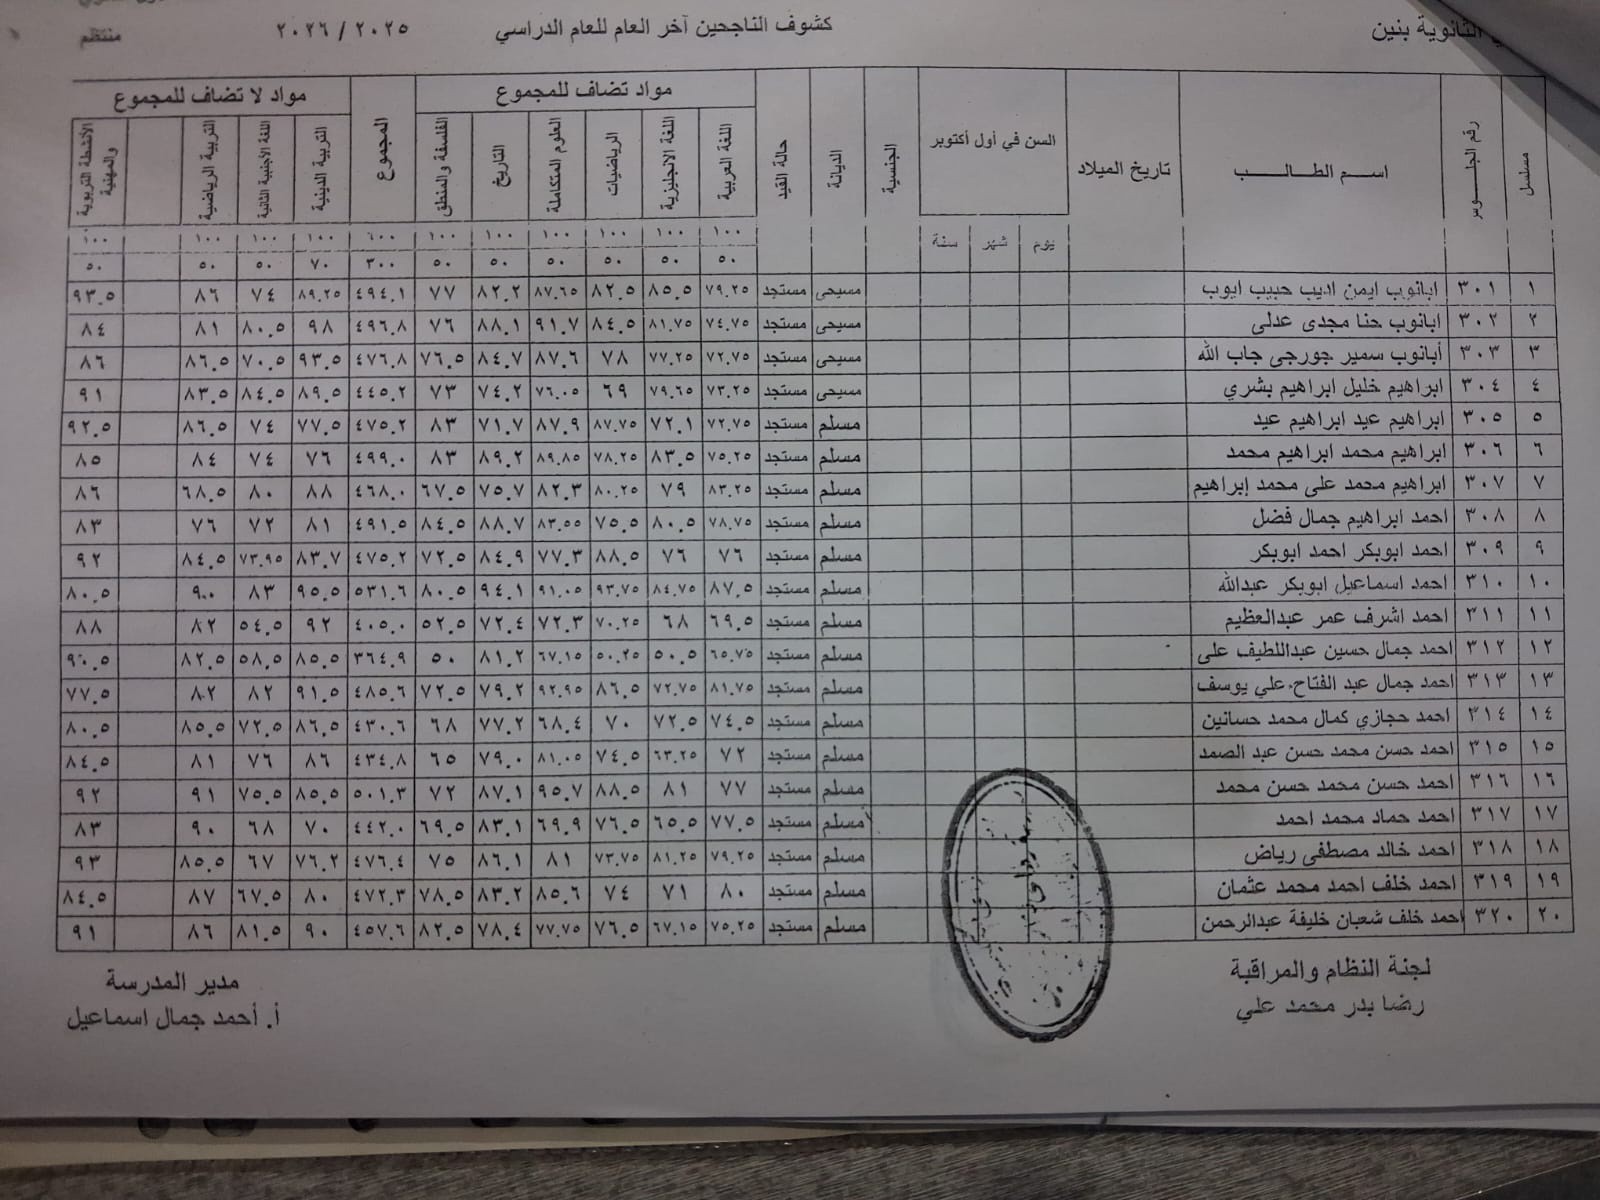 الثانوية بنين كشوف الناجحين آخر العام للعام الدراسي ٢٠٢٥ / ٢٠٢٦ منتظم
مسلسل رقم الجلوس اسم الطالب تاريخ الميلاد السن في أول أكتوبر الجنسية الديانة حالة القيد مواد تضاف للمجموع المجموع مواد لا تضاف للمجموع
يوم شهر سنة اللغة العربية اللغة الانجليزية الرياضيات العلوم المتكاملة التاريخ الفلسفة والمنطق التربية الدينية اللغة الأجنبية الثانية التربية الرياضية الأنشطة التربوية والمهنية
١٠٠ ١٠٠ ١٠٠ ١٠٠ ١٠٠ ١٠٠ ٦٠٠ ١٠٠ ١٠٠ ١٠٠ ١٠٠
٥٠ ٥٠ ٥٠ ٥٠ ٥٠ ٥٠ ٣٠٠ ٧٠ ٥٠ ٥٠ ٥٠
١ ٣٠١ ابانوب ايمن اديب حبيب ايوب مسيحى مستجد ٧٩.٢٥ ٨٥.٥ ٨٢.٥ ٨٧.٦٥ ٨٢.٢ ٧٧ ٤٩٤.١ ٨٩.٢٥ ٧٤ ٨٦ ٩٣.٥
٢ ٣٠٢ ابانوب حنا مجدى عدلى مسيحى مستجد ٧٤.٧٥ ٨١.٧٥ ٨٤.٥ ٩١.٧ ٨٨.١ ٧٦ ٤٩٦.٨ ٩٨ ٨٠.٥ ٨١ ٨٤
٣ ٣٠٣ أبانوب سمير جورجى جاب الله مسيحى مستجد ٧٢.٧٥ ٧٧.٢٥ ٧٨ ٨٧.٦ ٨٤.٧ ٧٦.٥ ٤٧٦.٨ ٩٣.٥ ٧٠.٥ ٨٦.٥ ٨٦
٤ ٣٠٤ ابراهيم خليل ابراهيم بشري مسيحى مستجد ٧٣.٢٥ ٧٩.٦٥ ٦٩ ٧٦.٠٥ ٧٤.٢ ٧٣ ٤٤٥.٢ ٨٩.٥ ٨٤.٥ ٨٣.٥ ٩١
٥ ٣٠٥ ابراهيم عيد ابراهيم عيد مسلم مستجد ٧٢.٧٥ ٧٢.١ ٨٧.٧٥ ٨٧.٩ ٧١.٧ ٨٣ ٤٧٥.٢ ٧٧.٥ ٧٤ ٨٦.٥ ٩٢.٥
٦ ٣٠٦ ابراهيم محمد ابراهيم محمد مسلم مستجد ٧٥.٢٥ ٨٣.٥ ٧٨.٢٥ ٨٩.٨٥ ٨٩.٢ ٨٣ ٤٩٩.٠ ٧٦ ٧٤ ٨٤ ٨٥
٧ ٣٠٧ ابراهيم محمد على محمد إبراهيم مسلم مستجد ٨٣.٢٥ ٧٩ ٨٠.٢٥ ٨٢.٣ ٧٥.٧ ٦٧.٥ ٤٦٨.٠ ٨٨ ٨٠ ٦٨.٥ ٨٦
٨ ٣٠٨ احمد ابراهيم جمال فضل مسلم مستجد ٧٨.٧٥ ٨٠.٥ ٧٥.٥ ٨٣.٥٥ ٨٨.٧ ٨٤.٥ ٤٩١.٥ ٨١ ٧٢ ٧٦ ٨٣
٩ ٣٠٩ احمد ابوبكر احمد ابوبكر مسلم مستجد ٧٦ ٧٦ ٨٨.٥ ٧٧.٣ ٨٤.٩ ٧٢.٥ ٤٧٥.٢ ٨٣.٧ ٧٣.٩٥ ٨٤.٥ ٩٢
١٠ ٣١٠ احمد اسماعيل ابوبكر عبدالله مسلم مستجد ٨٧.٥ ٨٤.٧٥ ٩٣.٧٥ ٩١.٠٥ ٩٤.١ ٨٠.٥ ٥٣١.٦ ٩٥.٥ ٨٣ ٩٠ ٨٠.٥
١١ ٣١١ احمد اشرف عمر عبدالعظيم مسلم مستجد ٦٩.٥ ٦٨ ٧٠.٢٥ ٧٢.٣ ٧٢.٤ ٥٢.٥ ٤٠٥.٠ ٩٢ ٥٤.٥ ٨٢ ٨٨
١٢ ٣١٢ احمد جمال حسين عبداللطيف على مسلم مستجد ٦٥.٧٥ ٥٠.٥ ٥٠.٢٥ ٦٧.١٥ ٨١.٢ ٥٠ ٣٦٤.٩ ٨٥.٥ ٥٨.٥ ٨٢.٥ ٩٠.٥
١٣ ٣١٣ احمد جمال عبد الفتاح علي يوسف مسلم مستجد ٨١.٧٥ ٧٢.٧٥ ٨٦.٥ ٩٢.٩٥ ٧٩.٢ ٧٢.٥ ٤٨٥.٦ ٩١.٥ ٨٢ ٨٢ ٧٧.٥
١٤ ٣١٤ احمد حجازي كمال محمد حسانين مسلم مستجد ٧٤.٥ ٧٢.٥ ٧٠ ٦٨.٤ ٧٧.٢ ٦٨ ٤٣٠.٦ ٨٦.٥ ٧٢.٥ ٨٥.٥ ٨٠.٥
١٥ ٣١٥ احمد حسن محمد حسن عبد الصمد مسلم مستجد ٧٢ ٦٣.٢٥ ٧٤.٥ ٨١.٠٥ ٧٩.٠ ٦٥ ٤٣٤.٨ ٨٦ ٧٦ ٨١ ٨٤.٥
١٦ ٣١٦ احمد حسن محمد حسن محمد مسلم مستجد ٧٧ ٨١ ٨٨.٥ ٩٥.٧ ٨٧.١ ٧٢ ٥٠١.٣ ٨٥.٥ ٧٥.٥ ٩١ ٩٢
١٧ ٣١٧ احمد حماد محمد احمد مسلم مستجد ٧٧.٥ ٦٥.٥ ٧٦.٥ ٦٩.٩ ٨٣.١ ٦٩.٥ ٤٤٢.٠ ٧٠ ٦٨ ٩٠ ٨٣
١٨ ٣١٨ احمد خالد مصطفى رياض مسلم مستجد ٧٩.٢٥ ٨١.٢٥ ٧٣.٧٥ ٨١ ٨٦.١ ٧٥ ٤٧٦.٤ ٧٦.٢ ٦٧ ٨٥.٥ ٩٣
١٩ ٣١٩ احمد خلف احمد محمد عثمان مسلم مستجد ٨٠ ٧١ ٧٤ ٨٥.٦ ٨٣.٢ ٧٨.٥ ٤٧٢.٣ ٨٠ ٦٧.٥ ٨٧ ٨٤.٥
٢٠ ٣٢٠ احمد خلف شعبان خليفة عبدالرحمن مسلم مستجد ٧٥.٢٥ ٦٧.١٥ ٧٦.٥ ٧٧.٧٥ ٧٨.٤ ٨٢.٥ ٤٥٧.٦ ٩٠ ٨١.٥ ٨٦ ٩١
لجنة النظام والمراقبة مدير المدرسة
رضا بدر محمد علي أ. أحمد جمال اسماعيل